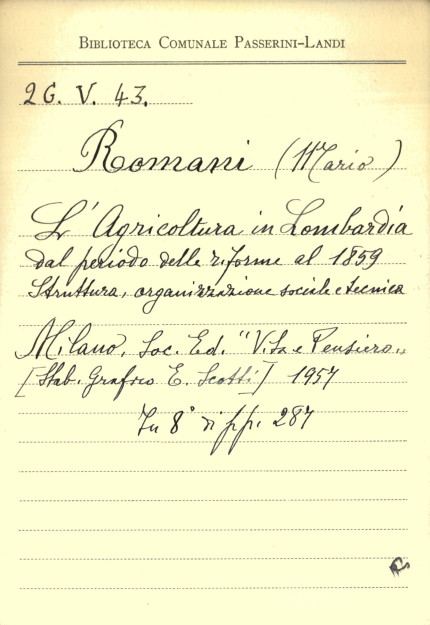 BIBLIOTECA COMUNALE PASSERINI-LANDI
2G. V. 43.
Romani (Mario)
L'Agricoltura in Lombardia
dal periodo delle riforme al 1859
Struttura, organizzazione sociale e tecnica
Milano, Soc. Ed. "Vita e Pensiero"
[Stab. Grafico E. Scotti] 1957
In 8° di pp. 287